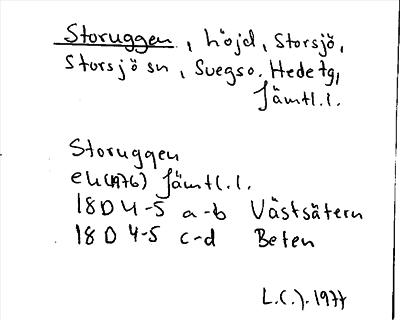 Storuggen, höjd, Storsjö,
Storsjö sn, Svegs o. Hede tg,
Jämtl.l.
Storuggen
ek(1976) Jämtl.l.
18D 4-5 a-b Västsätern
18D 4-5 c-d Beten
L.C.J. 1977